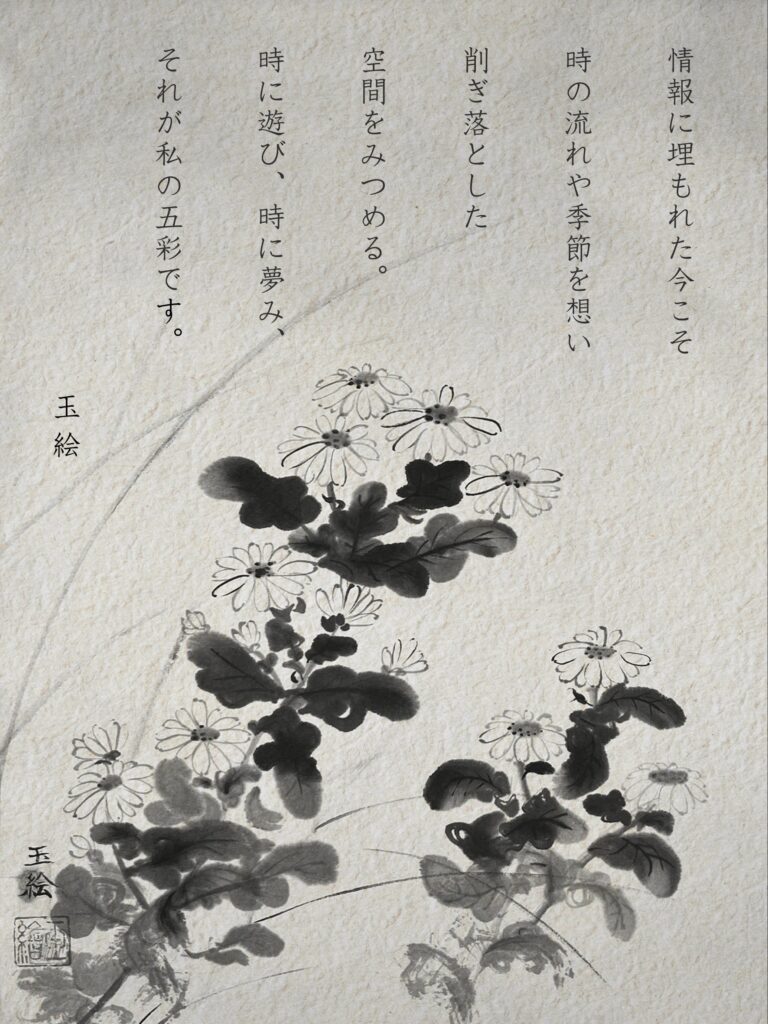 情報に埋もれた今こそ
時の流れや季節を想い
削ぎ落とした
空間をみつめる。
時に遊び、時に夢み、
それが私の五彩です。
玉絵
玉絵